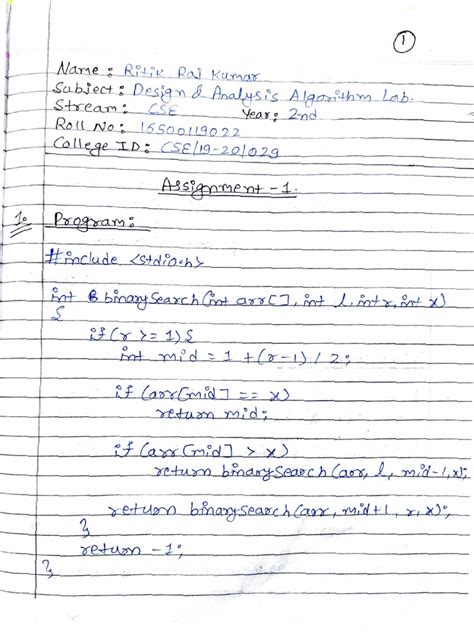 1
Name : Ritik Raj Kumar
Subject : Design & Analysis Algorithm Lab.
Stream : CSE Year : 2nd
Roll No : 15500119022
College ID : CSE/19-20/029
Assignment - 1.
1. Program :
#include <stdio.h>
int binarySearch (int arr[], int l, int r, int x)
{
if (r >= 1) {
int mid = 1 + (r-1) / 2;
if (arr[mid] == x)
return mid;
if (arr[mid] > x)
return binarySearch (arr, l, mid-1, x);
return binarySearch (arr, mid+1, r, x);
}
return -1;
}